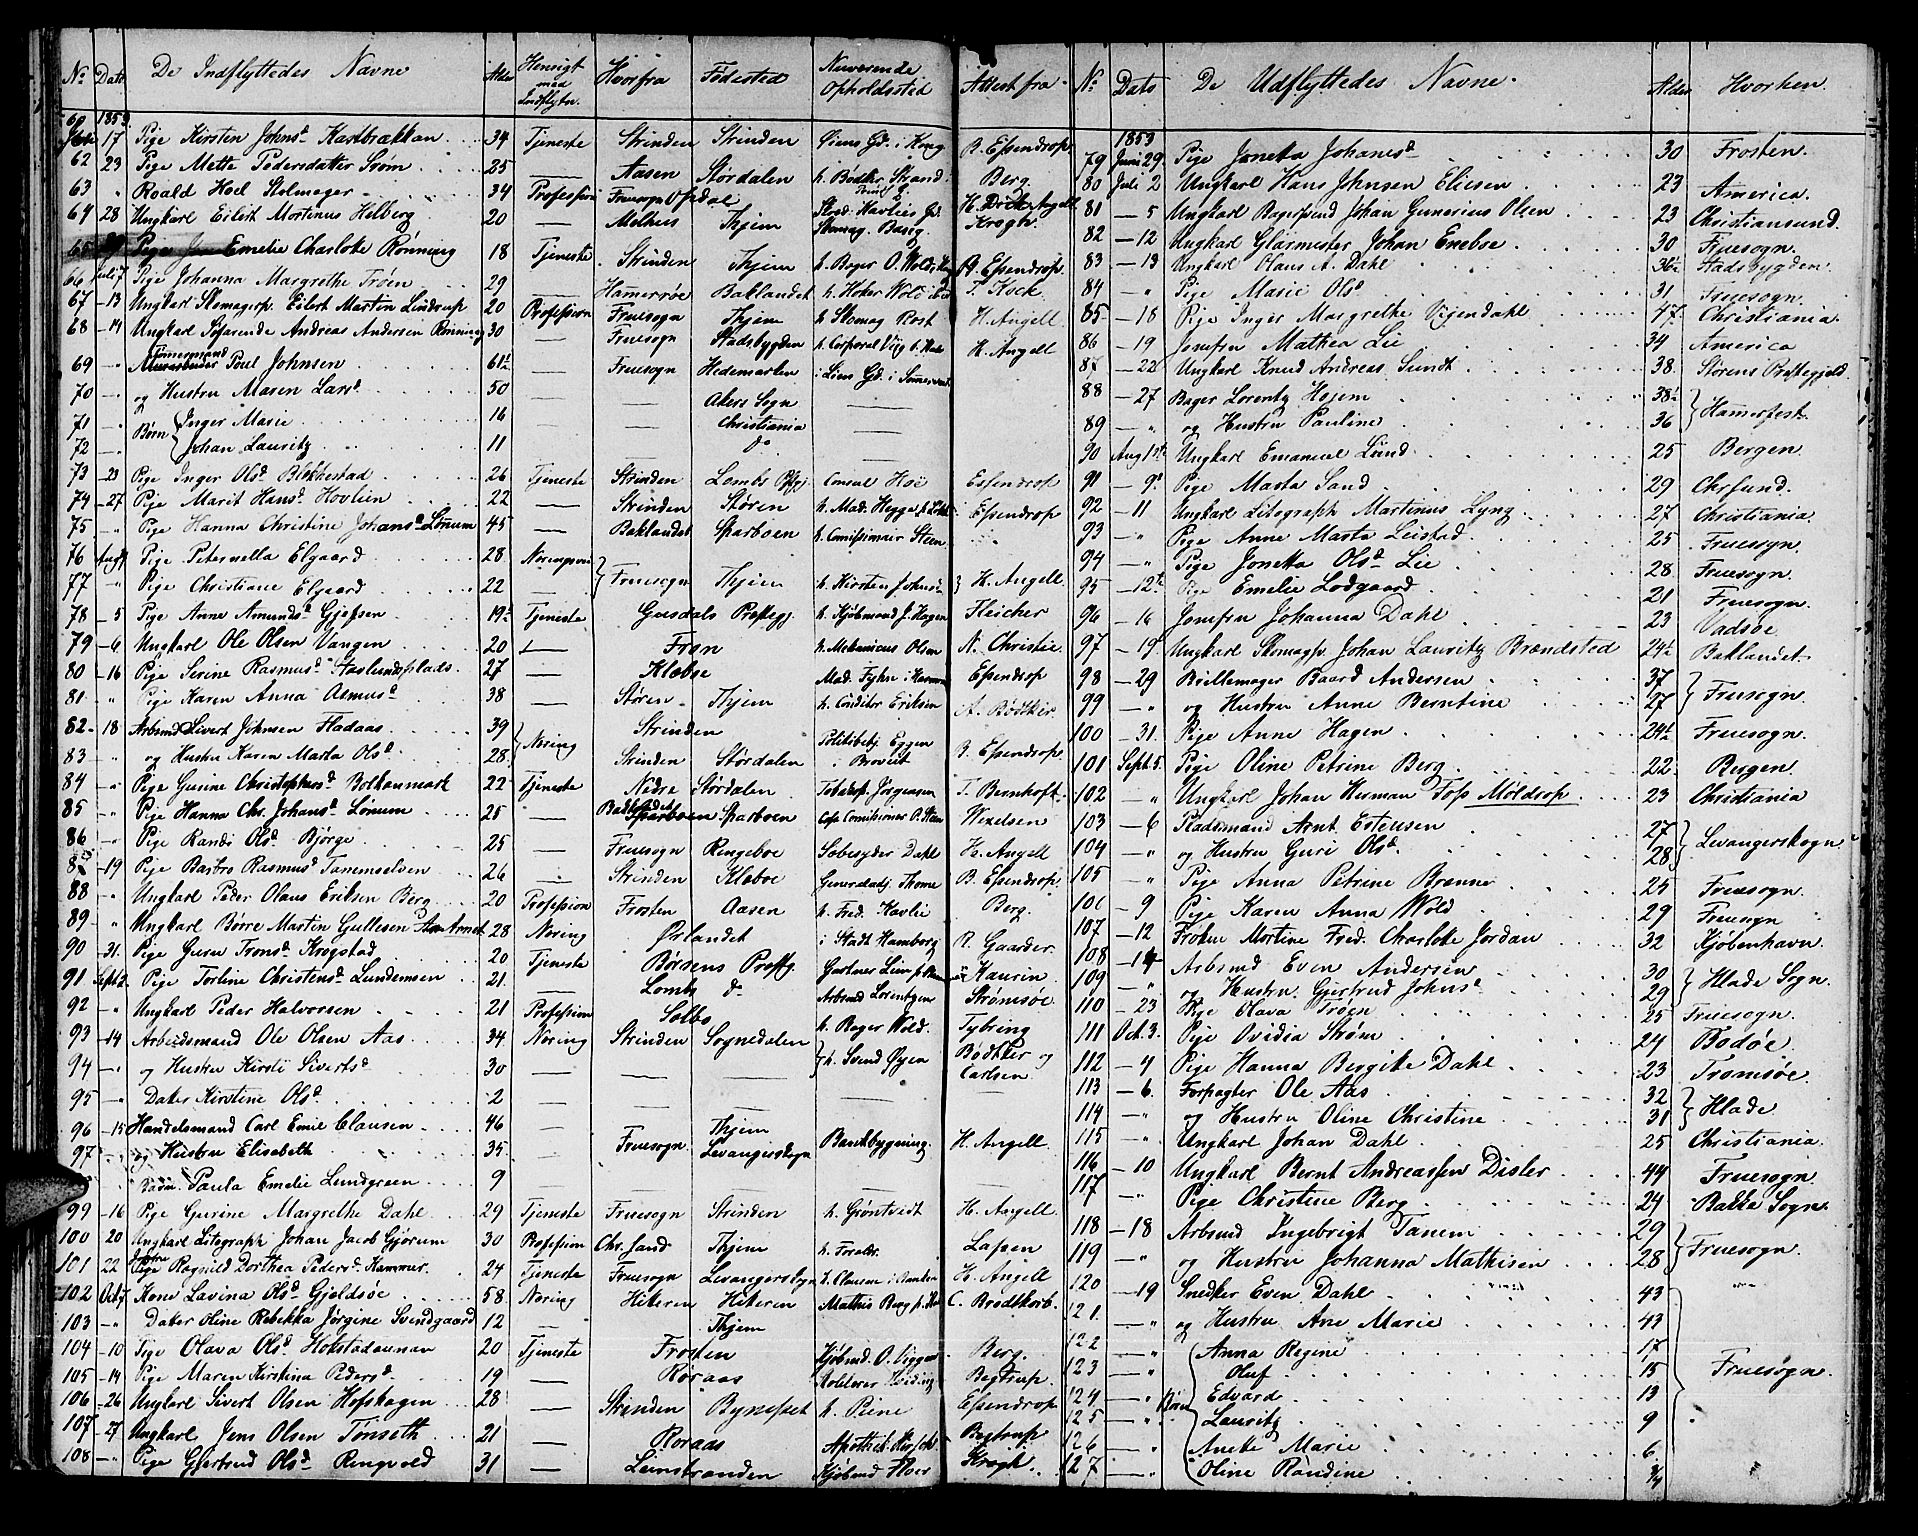 No Dato De Indflyttedes Navne Alder Hensigt med Indflytn. Hvorfra Fødested Nuværende Opholdssted Attest fra
1853
17 Pige Kirsten Johnsd Kastbrækkan 34 Tjeneste Strinden Strinden B. Essendrop
62 23 Pige Mette Pedersdatter Svøm 25 — Aasen Størdalen h. Bødker Strand Berg.
63 " Roald Hoel Skomager 34 Profession Fruesogn Opdal
64 28 Ungkarl Eilert Mortinus Helberg 20 — Melhus Thjem Krogh
65 Emelie Charlotte Rønning 18 Tjeneste Strinden Thjem h. Bager O. Wold B. Essendrop
66 Juli 7 Pige Johanna Margrethe Trøen 29 — Hammerøe Baklandet h. Høker Wold T. Kock
67 -13 Ungkarl Skomagersv. Eilert Martin Lindrup 20 Profession Fruesogn Thjem h. Skomag Rost H. Angell
68 -14 Ungkarl Andreas Andersen Rønning 30 — Fruesogn Stadsbygden h. Corporal H. Angell
69 -" Tømermand Poul Johnsen 61½ — Fruesogn Hedemarken
70 -" og Hustru Maren Larsd 50 Akers Sogn —
71 -" Børn Inger Marie 16 — — Christiania —
72 -" Johan Lauritz 11 — — do —
73 -23 Pige Inger Olsd Blekkestad 26 Tjeneste Strinden Lombs Consul Hoe Essendrop
74 -27 Pige Marit Hansd Hovlien 22 — Strinden Støren h. Mad. Hegge Essendrop
75 " Pige Hanna Christine Johansd Lømum 45 — Baklandet Sparboen h. Comissionair Steen
76 Aug 1 Pige Peternella Elgaard 28
77 -" Pige Christiane Elgaard 22 — Fruesogn Thjem h. Kirsten Johnsd H. Angell
78 -5 Pige Anne Amundsd Gjefsen 19½ Tjeneste Gusdals Præstegj. h. Kjøbmand J. Hagen Fleicher
79 -6 Ungkarl Ole Olsen Vangen 20 — Fron h. Mekanicus Olsen N. Christie
80 -16 Pige Serine Rasmusd Haslundsplads 27 — Klæboe Mad. Fyhn i Essendrop
81 " Pige Karen Anna Asmusd 38 — Støren Thjem h. Conditor Eriksen A. Bødtker
82 -18 Arbsmd Sivert Johnsen Fladaas 39 Næring Strinden Politibetj. Eggen
83 " og Hustru Karen Marta Olsd 28 Strinden Størdalen B. Essendrop
84 -" Pige Gurine Christophersd Volkanmark 22 Tjeneste Nedre Størdalen Tobaksp. Jørgensen T. Bernhoft
85 -" Pige Hanna Chr. Johansd Lømum 25 — Baklandet Sparboen Wexelsen
86 -" Pige Randi Olsd Bjørge 25 — Fruesogn Ringeboe Sæbesyder Dahl H. Angell
87 -19 Pige Barbro Rasmusd Tanemselven 26 — Strinden Klæboe Generaladj. Thome B. Essendrop
88 " Ungkarl Peder Olaus Eriksen Berg 20 Profession Frosten Aasen h. Fred. Havlie Berg
89 " Ungkarl Børre Martin Gullesen 28 Næring Ørlandet i Stadt Hamborg R. Gaarder
90 -31 Pige Guru Tronsd Krogstad 20 Tjeneste Børsens Præstg. Gartner Lein Kaurin
91 Sept 2 Pige Torline Christensd Lundemsen 21 — Lombs do Arbsmd Lorentzen Strømsøe
92 -" Ungkarl Peder Halvorsen 21 Profession Selbo h. Bager Wold. Tybring
93 -14 Arbeidsmand Ole Olsen Aas 34 Næring Strinden Sognedalen h. Svend Øyen Bødtker og
94 -" og Hustru Kirsti Sivertsd 30 — — — Carlsen
95 -" Dater Kirstine Olsd 2 — — — —
96 -15 Handelsmand Carl Emil Clausen 46 — Thjem
97 " og Hustru Elisabeth 35 — Fruesogn Levangerskogn Bankbygning H. Angell
Barn Paula Emelie Lundgreen 9 — — — — —
99 -16 Pige Gurine Margrethe Dahl 29 Tjeneste Fruesogn Strinden h. Grøntvedt H. Angell
100 20 Ungkarl Litograph Johan Jacob Gjørum 30 Profession Chr.sand Thjem h. Foraldr. Lassen
101 22 Pige Ragnild Dorthea Pedersd Hammer 24 Tjeneste Fruesogn Levangerskogn h. Clausen i Banken H. Angell
102 Oct 7 Kone Lavina Olsd Gjeldsøe 58 Næring Hiteren Hiteren Mathis Berg C. Brodtkorb
103 -" Dater Oline Rebekka Jørgine Svendgaard 12 — Thjem
104 -10 Pige Olava Olsd Hokstadaunan 20 Tjeneste Frosten Kjøbmd. O. Viggen Berg.
105 -14 Pige Maren Kirstina Pedersd 19 — Røraas Bertrup
106 -26 Ungkarl Sivert Olsen Hofshagen 28 — Strinden Bynesset h. Piene Essendrop
107 -27 Ungkarl Jens Olsen Tønseth 21 — Roraas Bertrup
108 -" Pige Gjertrud Olsd Ringvold 31 — Leinstranden Kjøbmd Floer Krogh
No Dato De Udflyttedes Navne Alder Hvorhen
1853
79 Juni 29 Pige Joneta Johanesd 30 Frosten.
80 Juli 2 Ungkarl Hans Johnsen Eliesen 23 America
81 -5 Ungkarl Bagersvend Johan Gunerius Olsen 23 Christiansund
82 -12 Ungkarl Glasmester Johan Eneboe 30 Fruesogn
83 -13 Ungkarl Olaus A. Dahl 36½ Stadsbygden
84 -" Pige Marie Olsd 31 Fruesogn
85 -18 Pige Inger Margrethe Vigendahl 47 Christiania
86 -19 Jomfru Mathea Lie 34 America
87 -22 Ungkarl Knud Andreas Sundt 38 Størens Præstegjeld
88 -27 Bager Lorentz Hojem 38½ Hamerfest
89 -" og Hustru Pauline 36
90 Aug 1ste Ungkarl Emanuel Lund 25 Bergen
91 -9 Pige Marta Sand 29 Chrsund.
92 -11 Ungkarl Litograph Martinus Lyng 27 Christiania
93 -" Pige Anne Marta Leistad 25 Fruesogn
94 -" Pige Jonetta Olsd Lie 28 Fruesogn
95 -12te Pige Emelie Lodgaard 21 Fruesogn.
96 -16 Jomfru Johanna Dahl 23 Vadsøe
97 -19 Ungkarl Skomagsv. Johan Lauritz Brændsted 24½ Baklandet
98 -29 Bøllemager Baard Andersen 37 Fruesogn
99 -" og Hustru Anne Berntine 27
100 -31 Pige Anne Hagen 24½ Fruesogn.
101 Sept 5 Pige Oline Petrine Berg 22 Bergen
102 -" Ungkarl Johan Herman Foss Moldrop 23 Christiania
103 -6 Pladsmand Arnt Estensen 27 Levangerskogn
104 -" og Hustru Guri Olsd 28
105 -" Pige Anna Petrine Brenne 25 Fruesogn
106 -9 Pige Karen Anna Wold 29 Fruesogn
107 -12 Frøken Mortine Fred. Charlotte Jordan 32 Kjøbenhavn
108 -14 Arbsmd Even Andersen 30 Hlade Sogn
109 -" og Hustru Gjertrud Johnsd 29
110 -23 Pige Olava Trøen 25 Fruesogn
111 Oct. 3. Pige Ovidia Strøm 24 Bodøe
112 -4 Pige Hanna Bergitte Dahl 23 Tromsøe
113 -6 Forpagter Ole Aas 32 Hlade
114 -" og Hustru Oline Christine 31
115 -" Ungkarl Johan Dahl 25 Christiania
116 -10 Ungkarl Bernt Andreassen Disler 44 Fruesogn
117 -" Pige Christine Berg 24 Bakke Sogn
118 -18 Arbsmd Ingebrigt Tanem 29 Fruesogn
119 -" og Hustru Johanna Mathisen 28
120 -19 Snedker Even Dahl 43
121 -" og Hustru Ane Marie 43
122 -" Anna Regine 17
123 -" Oluf 15 Fruesogn
124 -" Børn Edvard 13
125 -" Lauritz 9
126 -" Anette Marie 6
127 -" Oline Randine ¾